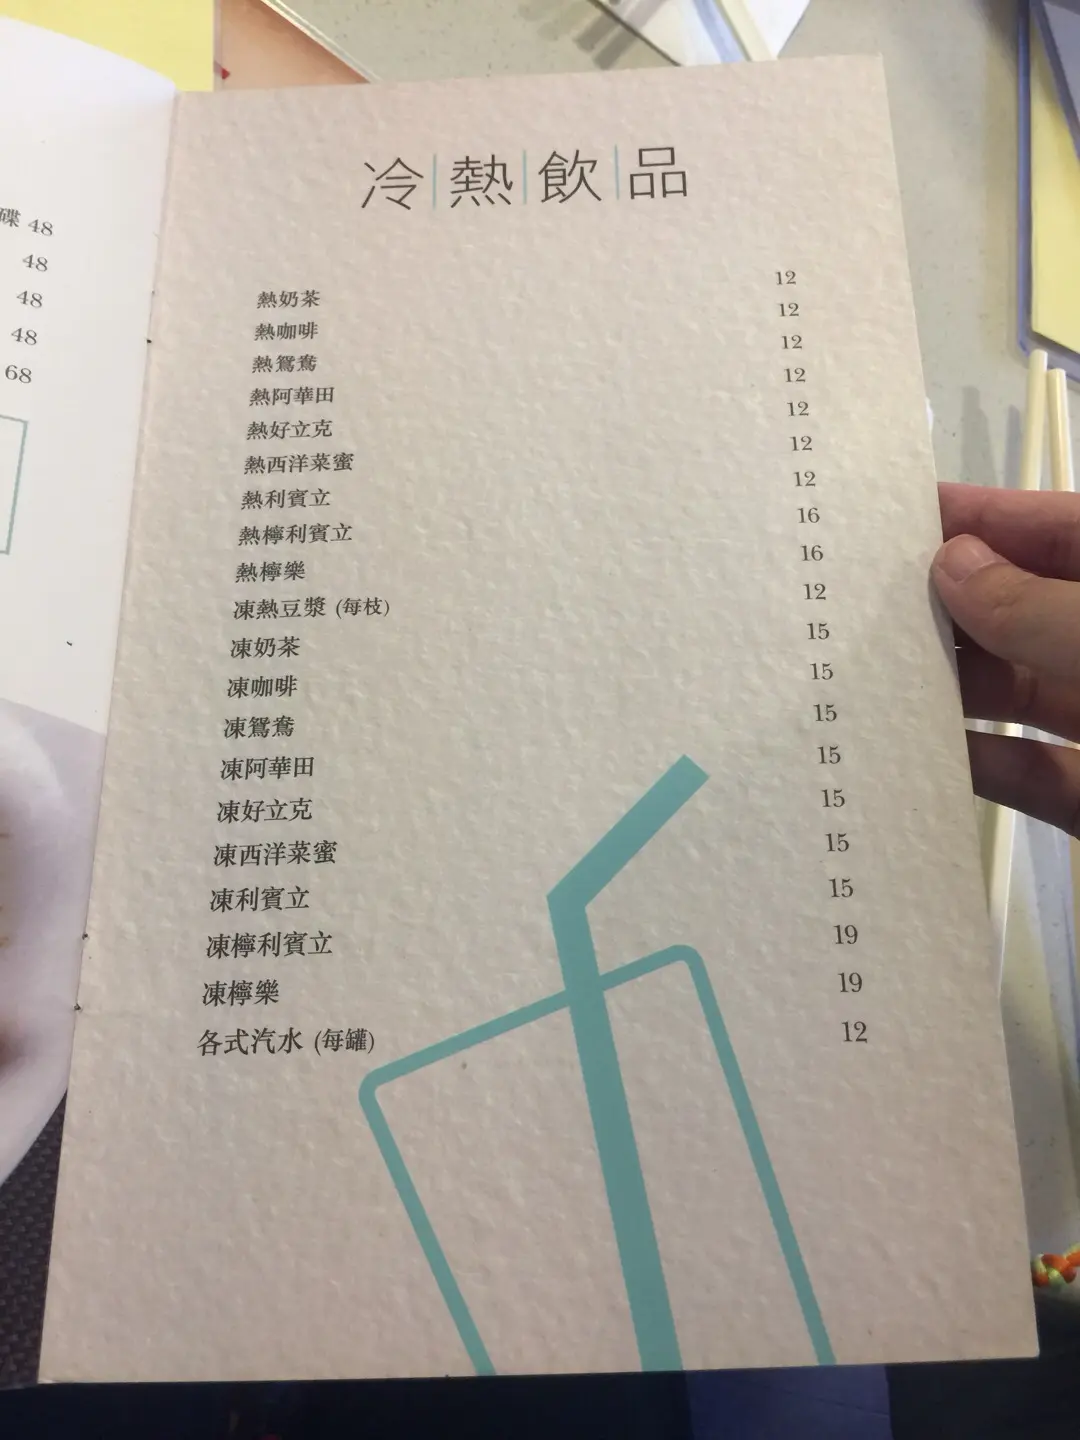 碟 48
48
48
48
68
冷|熱|飲|品
熱奶茶 12
熱咖啡 12
熱鴛鴦 12
熱阿華田 12
熱好立克 12
熱西洋菜蜜 12
熱利賓立 12
熱檸利賓立 16
熱檸樂 16
凍熱豆漿 (每枝) 12
凍奶茶 15
凍咖啡 15
凍鴛鴦 15
凍阿華田 15
凍好立克 15
凍西洋菜蜜 15
凍利賓立 15
凍檸利賓立 19
凍檸樂 19
各式汽水 (每罐) 12